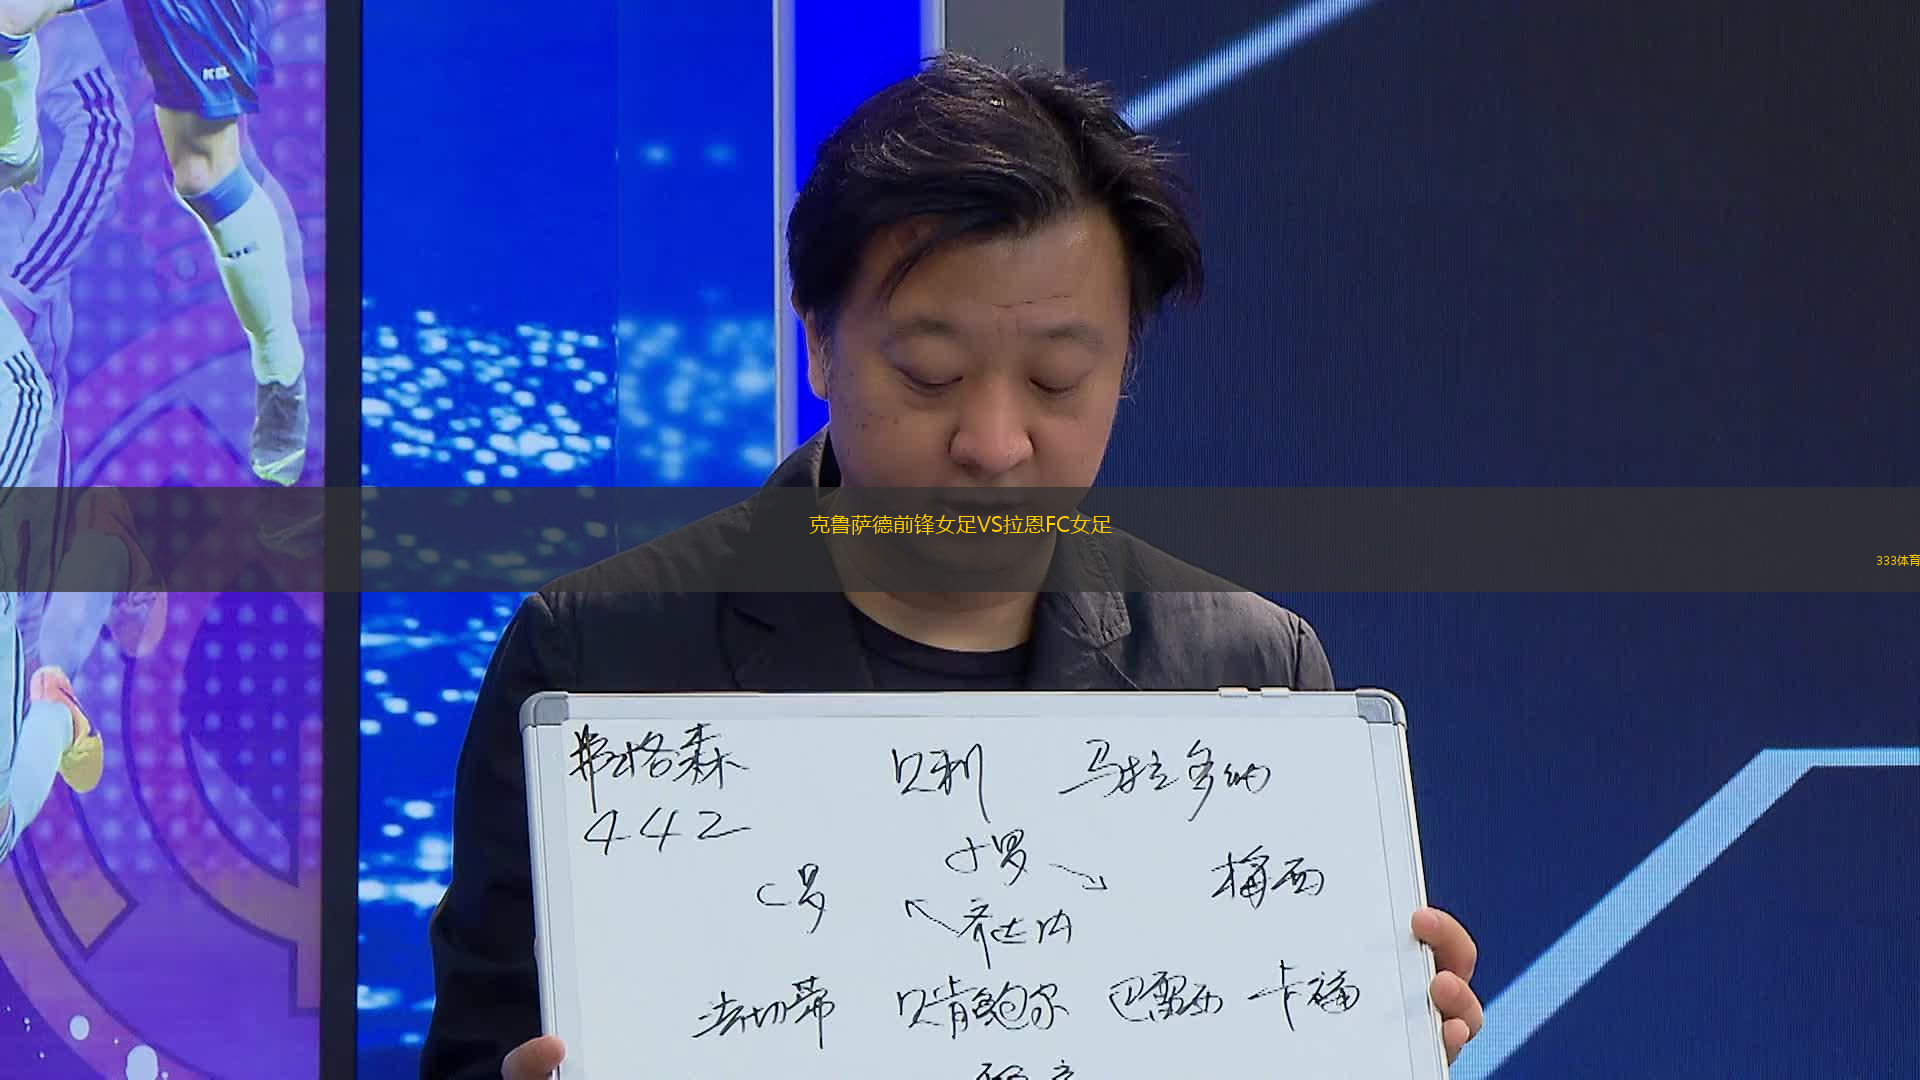 克鲁萨德前锋女足VS拉恩FC女足
333体育
弗格森 贝利 马拉多纳
442
小罗
C罗 梅西
齐达内
法切蒂 贝肯鲍尔 巴雷西 卡福